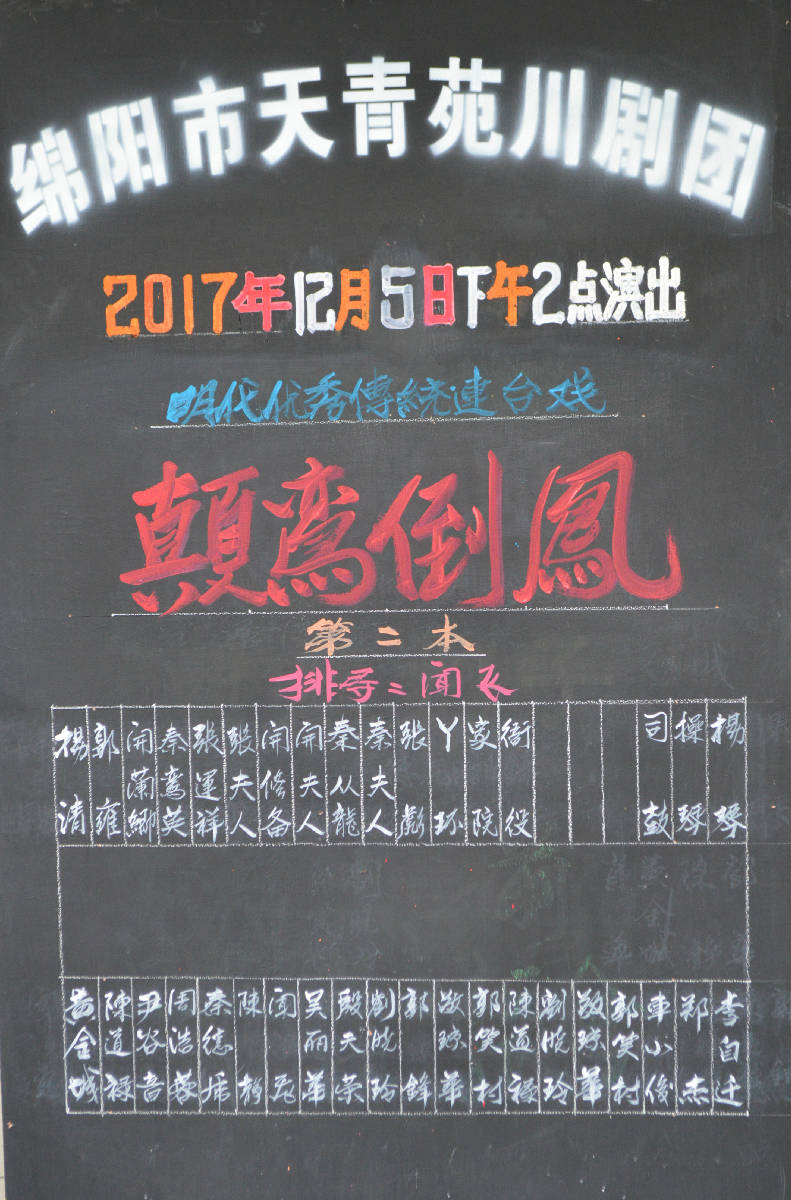 绵阳市天青苑川剧团
2017年12月5日下午2点演出
明代优秀傳統連台戏
顛鸾倒鳳
第二本
排导：闻飞
楊清
郭雍
開蘭卿
秦鸾英
张運祥
张夫人
開修备
開夫人
秦从龍
秦夫人
张彪
丫环
家院
衙役
司鼓
操琴
楊琴
黄金城
陳道禄
尹谷音
周浩蓉
秦德
陳静
闻飛
吴丽華
殷天荣
劉悦玲
郭鋒
敬琼華
郭笑村
陳道禄
劉悦玲
敬琼華
郭笑村
車小俊
郑杰
李自迁